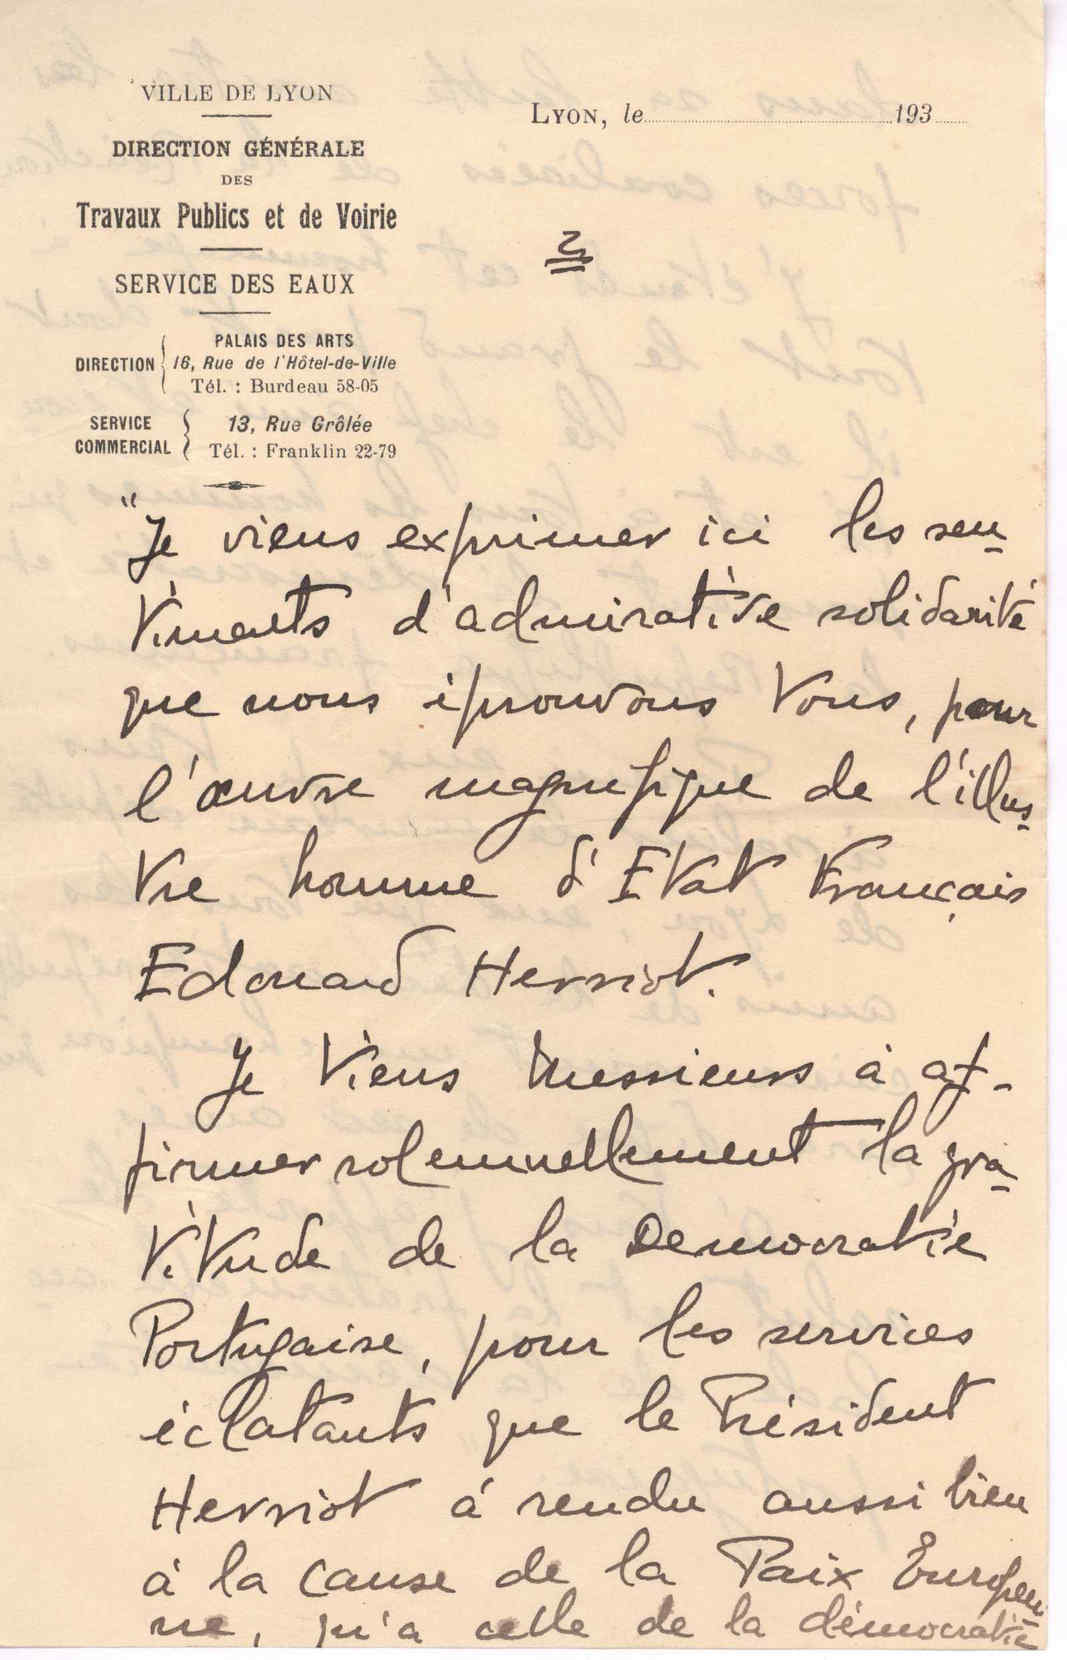 VILLE DE LYON
DIRECTION GÉNÉRALE
DES
Travaux Publics et de Voirie
SERVICE DES EAUX
DIRECTION { PALAIS DES ARTS
16, Rue de l'Hôtel-de-Ville
Tél. : Burdeau 58-05
SERVICE COMMERCIAL { 13, Rue Grôlée
Tél. : Franklin 22-79
LYON, le 193
2
"Je viens exprimer ici les sen-
timents d'admirative solidarité
que nous éprouvons tous, pour
l'œuvre magnifique de l'illus-
tre homme d'Etat Français
Edouard Herriot.
Je viens Messieurs à af-
firmer solennellement la gra-
titude de la Democratie
Portugaise, pour les services
éclatants que le Président
Herriot á rendu aussi bien
à la cause de la Paix Européen-
ne, qu'a celle de la démocratie